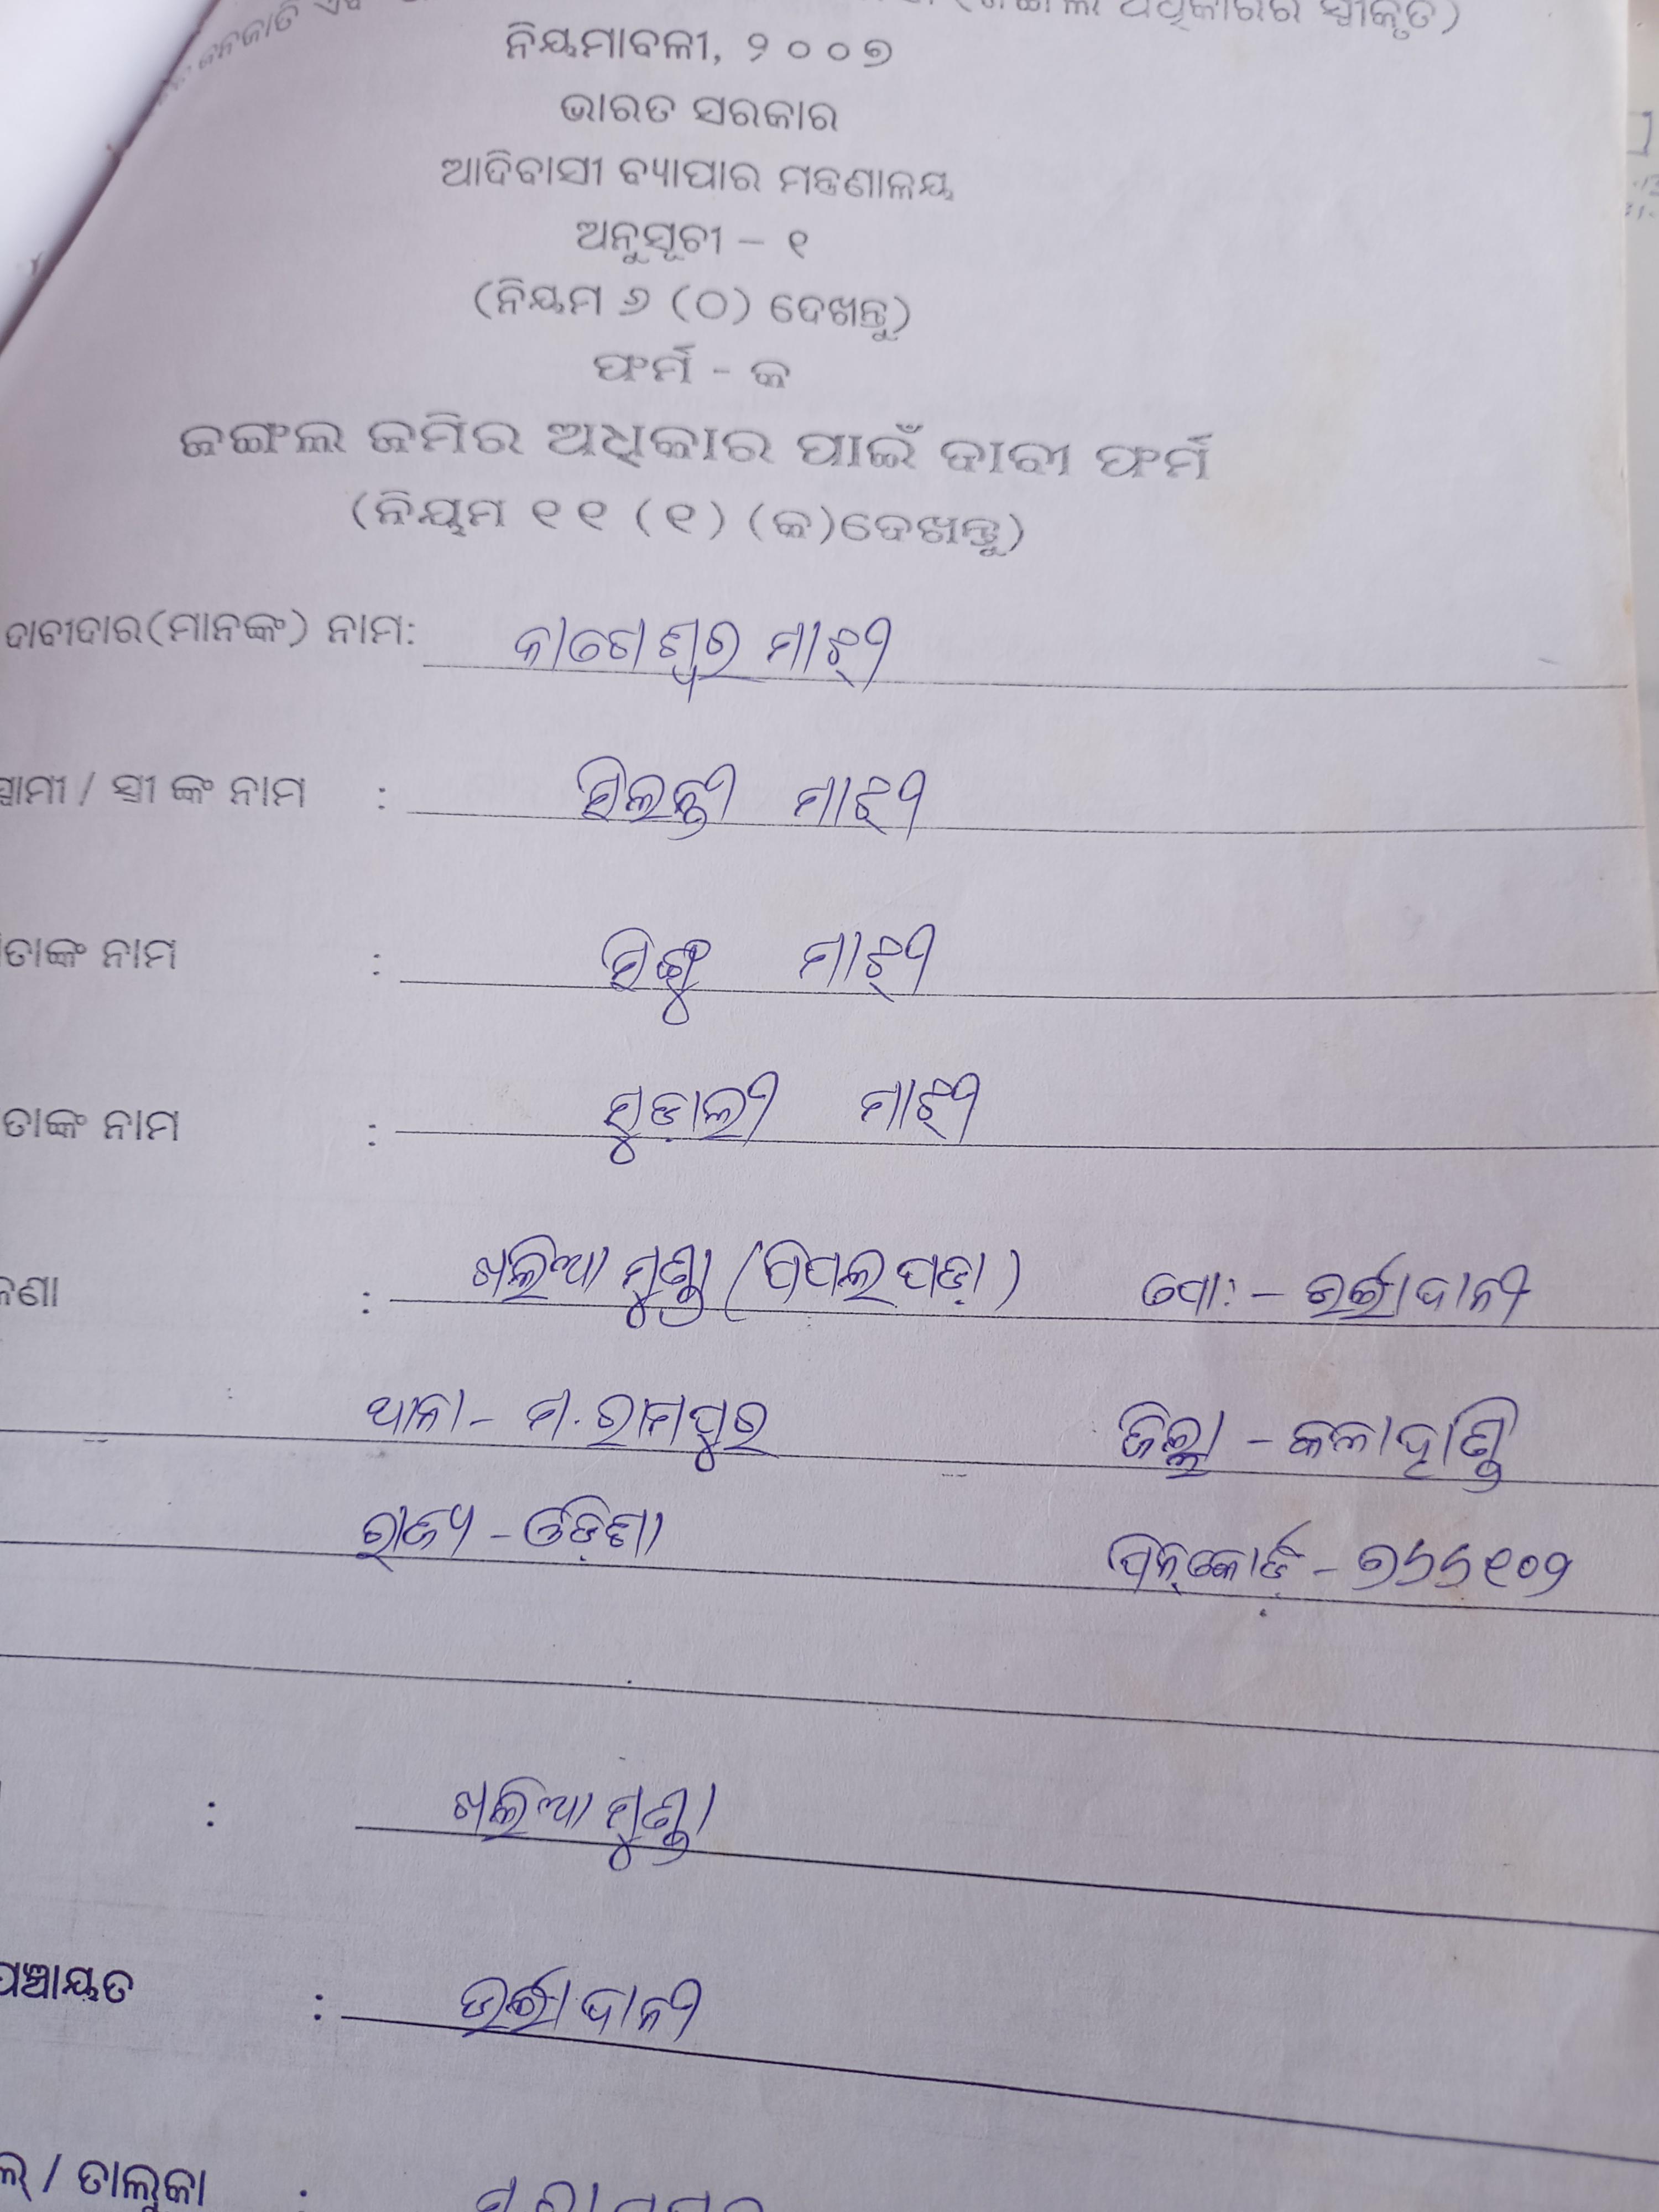 (ଜଙ୍ଗଲ ଅଧିକାରର ସ୍ୱୀକୃତି)
ନିୟମାବଳୀ, ୨୦୦୭
ଭାରତ ସରକାର
ଆଦିବାସୀ ବ୍ୟାପାର ମନ୍ତ୍ରଣାଳୟ
ଅନୁସୂଚୀ – ୧
(ନିୟମ ୬ (ଠ) ଦେଖନ୍ତୁ)
ଫର୍ମ - କ
ଜଙ୍ଗଲ ଜମିର ଅଧିକାର ପାଇଁ ଦାବୀ ଫର୍ମ
(ନିୟମ ୧୧ (୧) (କ)ଦେଖନ୍ତୁ)
ଦାବୀଦାର(ମାନଙ୍କ) ନାମ: ମାଝୀ
ସ୍ୱାମୀ / ସ୍ତ୍ରୀ ଙ୍କ ନାମ : ମାଝୀ
ତାଙ୍କ ନାମ : ମାଝୀ
ତାଙ୍କ ନାମ : ମାଝୀ
କଣା : ଖଲିଆମୁଣ୍ଡା (ପିପଲପଡ଼ା) ପୋ: –
ଥାନା – ମ. ରାମପୁର ଜିଲ୍ଲା – କଳାହାଣ୍ଡି
ରାଜ୍ୟ – ଓଡ଼ିଶା ପିନ୍‌କୋର୍ଡ଼ – ୭୬୬୧୦୨
: ଖଲିଆମୁଣ୍ଡା
ପଞ୍ଚାୟତ :
ଲ୍ / ତାଲୁକା :